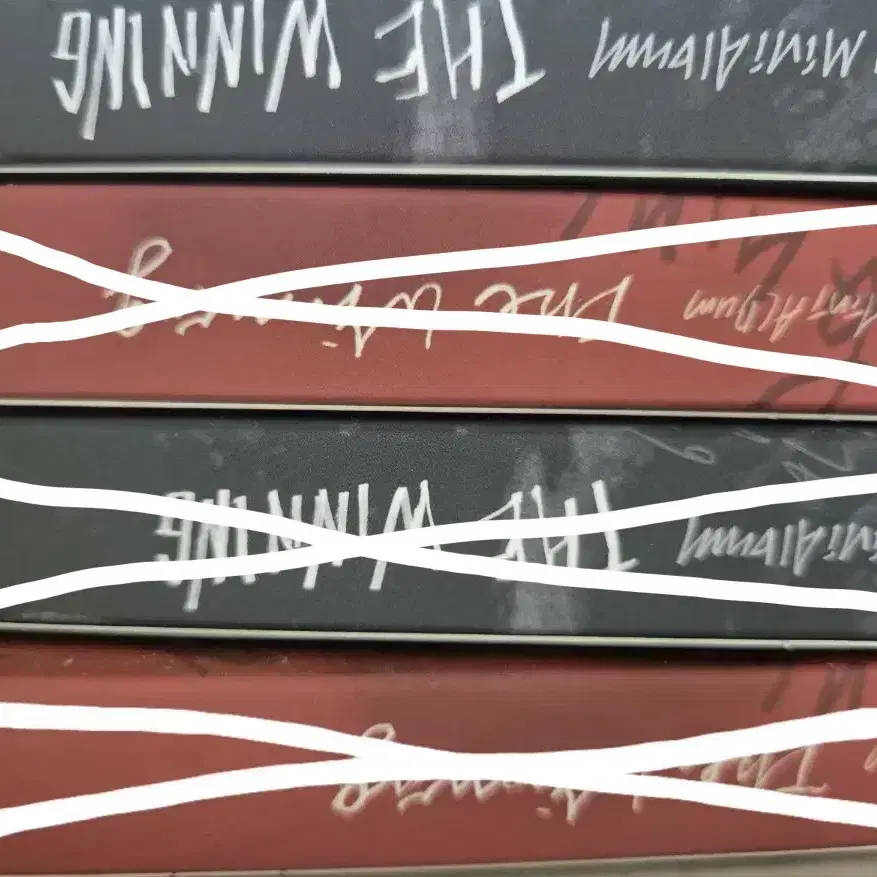 The Winning
Mini Album THE WINNING
Mini Album The Winning
Mini Album THE WINNING